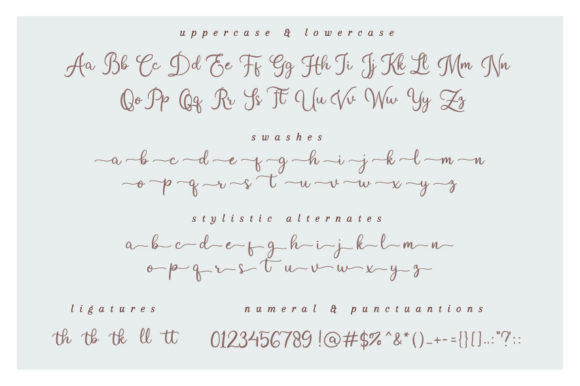 uppercase & lowercase
Aa Bb Cc Dd Ee Ff Gg Hh Ii Jj Kk Ll Mm Nn
Oo Pp Qq Rr Ss Tt Uu Vv Ww Yy Zz
swashes
a b c d e f g h i j k l m n
o p q r s t u v w x y z
stylistic alternates
a b c d e f g h i j k l m n
o p q r s t u v w x y z
ligatures
numeral & punctuantions
th tb tk ll tt
0123456789 !@#$%^&*()_+-={}[]..:"?'::